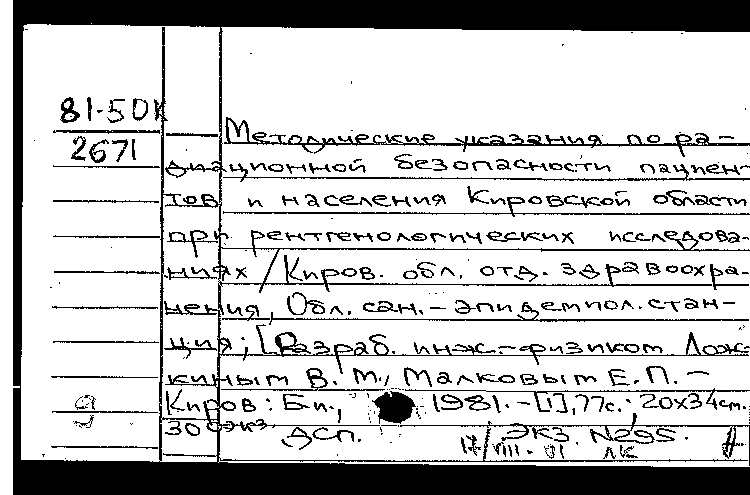 81-5ДК
2671
Методические указания по ра-
диационной безопасности пациен-
тов и населения Кировской области
при рентгенологических исследова-
ниях / Киров. обл. отд. здравоохра-
нения, Обл. сан.-эпидемиол. стан-
ция; [Разраб. инж.-физиком Лож-
киным В. М., Малковым Е. П. –
Киров: Б.и., 1981. – [1], 77с.; 20х34см.
300экз. ДСП. Экз. №295.
17/VIII.